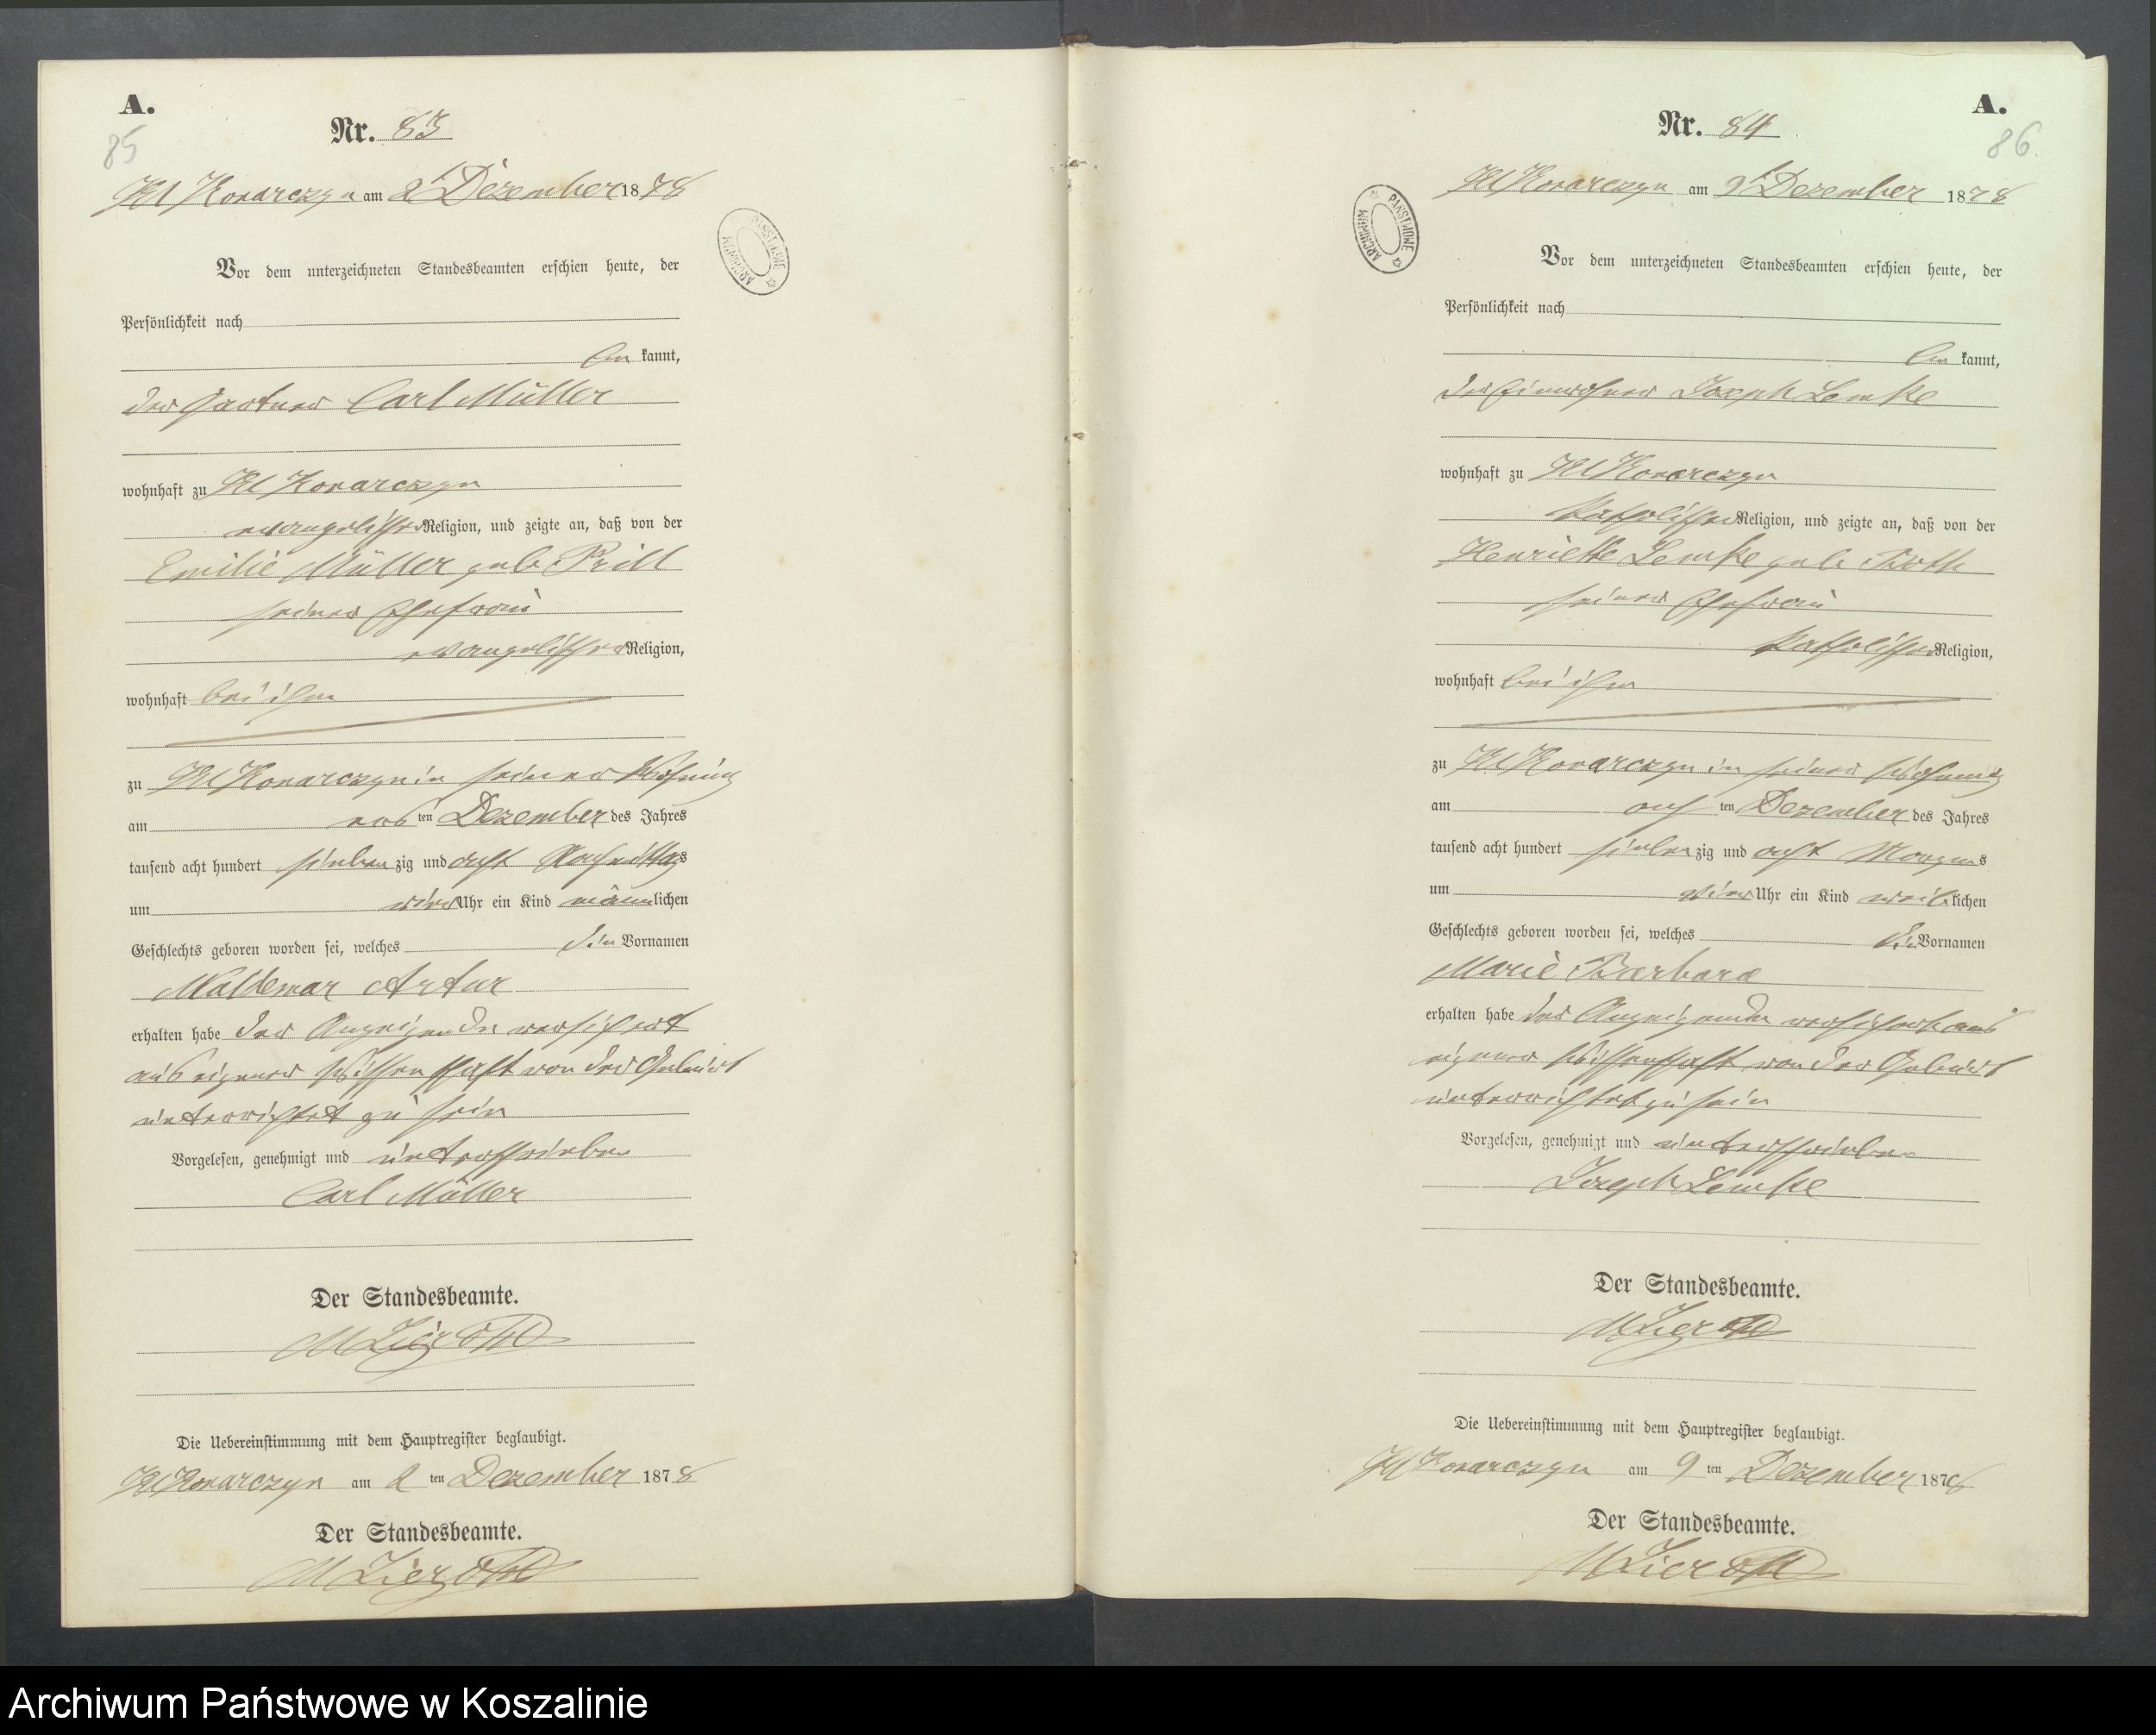 A.
85
Nr. 83
Kl Konarczyn am 2t Dezember 1878
Vor dem unterzeichneten Standesbeamten erschien heute, der
Persönlichkeit nach
be kannt,
der Gärtner Carl Müller
wohnhaft zu Kl Konarczyn
evangelischer Religion, und zeigte an, daß von der
Emilie Müller geb. Prill
seiner Ehefrau
evangelischer Religion,
wohnhaft bei ihm
zu Kl Konarczyn in seiner Wohnung
am ersten Dezember des Jahres
tausend acht hundert siebenzig und acht Nachmittags
um vier Uhr ein Kind männlichen
Geschlechts geboren worden sei, welches die Vornamen
Waldemar Artur
erhalten habe der Anzeigende versichert
aus eigener Wissenschaft von der Geburt
unterrichtet zu sein
Vorgelesen, genehmigt und unterschrieben
Carl Müller
Der Standesbeamte.
Die Uebereinstimmung mit dem Hauptregister beglaubigt.
Kl Konarczyn am 2 ten Dezember 1878
Der Standesbeamte.
A.
86
Nr. 84
Kl Konarczyn am 9t Dezember 1878
ARCHIWUM PAŃSTWOWE
Vor dem unterzeichneten Standesbeamten erschien heute, der
Persönlichkeit nach
be kannt,
der Einwohner Joseph Lemke
wohnhaft zu Kl Konarczyn
katholischer Religion, und zeigte an, daß von der
Henriette Lemke geb.
seiner Ehefrau
katholischer Religion,
wohnhaft bei ihm
zu Kl Konarczyn in seiner Wohnung
am achten Dezember des Jahres
tausend acht hundert siebenzig und acht Morgens
um vier Uhr ein Kind weiblichen
Geschlechts geboren worden sei, welches die Vornamen
Marie Barbara
erhalten habe der Anzeigende versichert aus
eigener Wissenschaft von der Geburt
unterrichtet zu sein
Vorgelesen, genehmigt und unterschrieben
Joseph Lemke
Der Standesbeamte.
Die Uebereinstimmung mit dem Hauptregister beglaubigt.
Kl Konarczyn am 9 ten Dezember 1878
Der Standesbeamte.
Archiwum Państwowe w Koszalinie